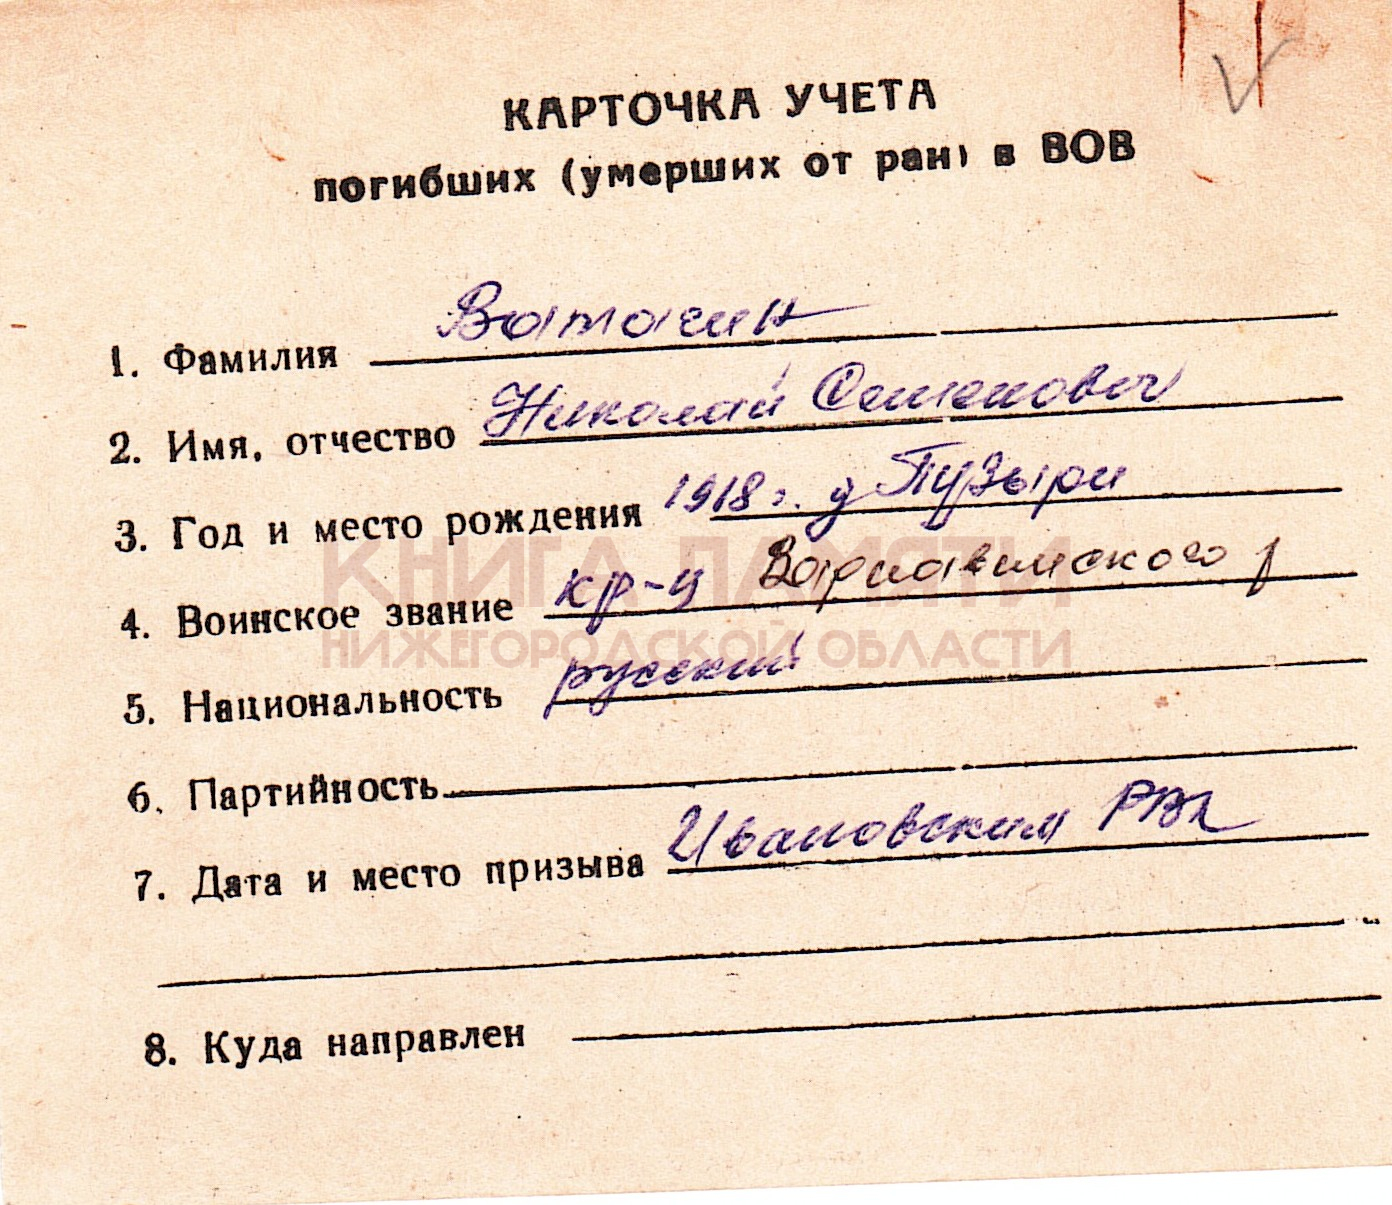 КАРТОЧКА УЧЕТА
погибших (умерших от ран) в ВОВ
1. Фамилия Ватагин
2. Имя, отчество Николай Семенович
3. Год и место рождения 1918 г. д Пузыри
4. Воинское звание кр-ц Варнавинского р
КНИГА ПАМЯТИ
НИЖЕГОРОДСКОЙ ОБЛАСТИ
5. Национальность русский
6. Партийность
7. Дата и место призыва Ивановским РВК
8. Куда направлен